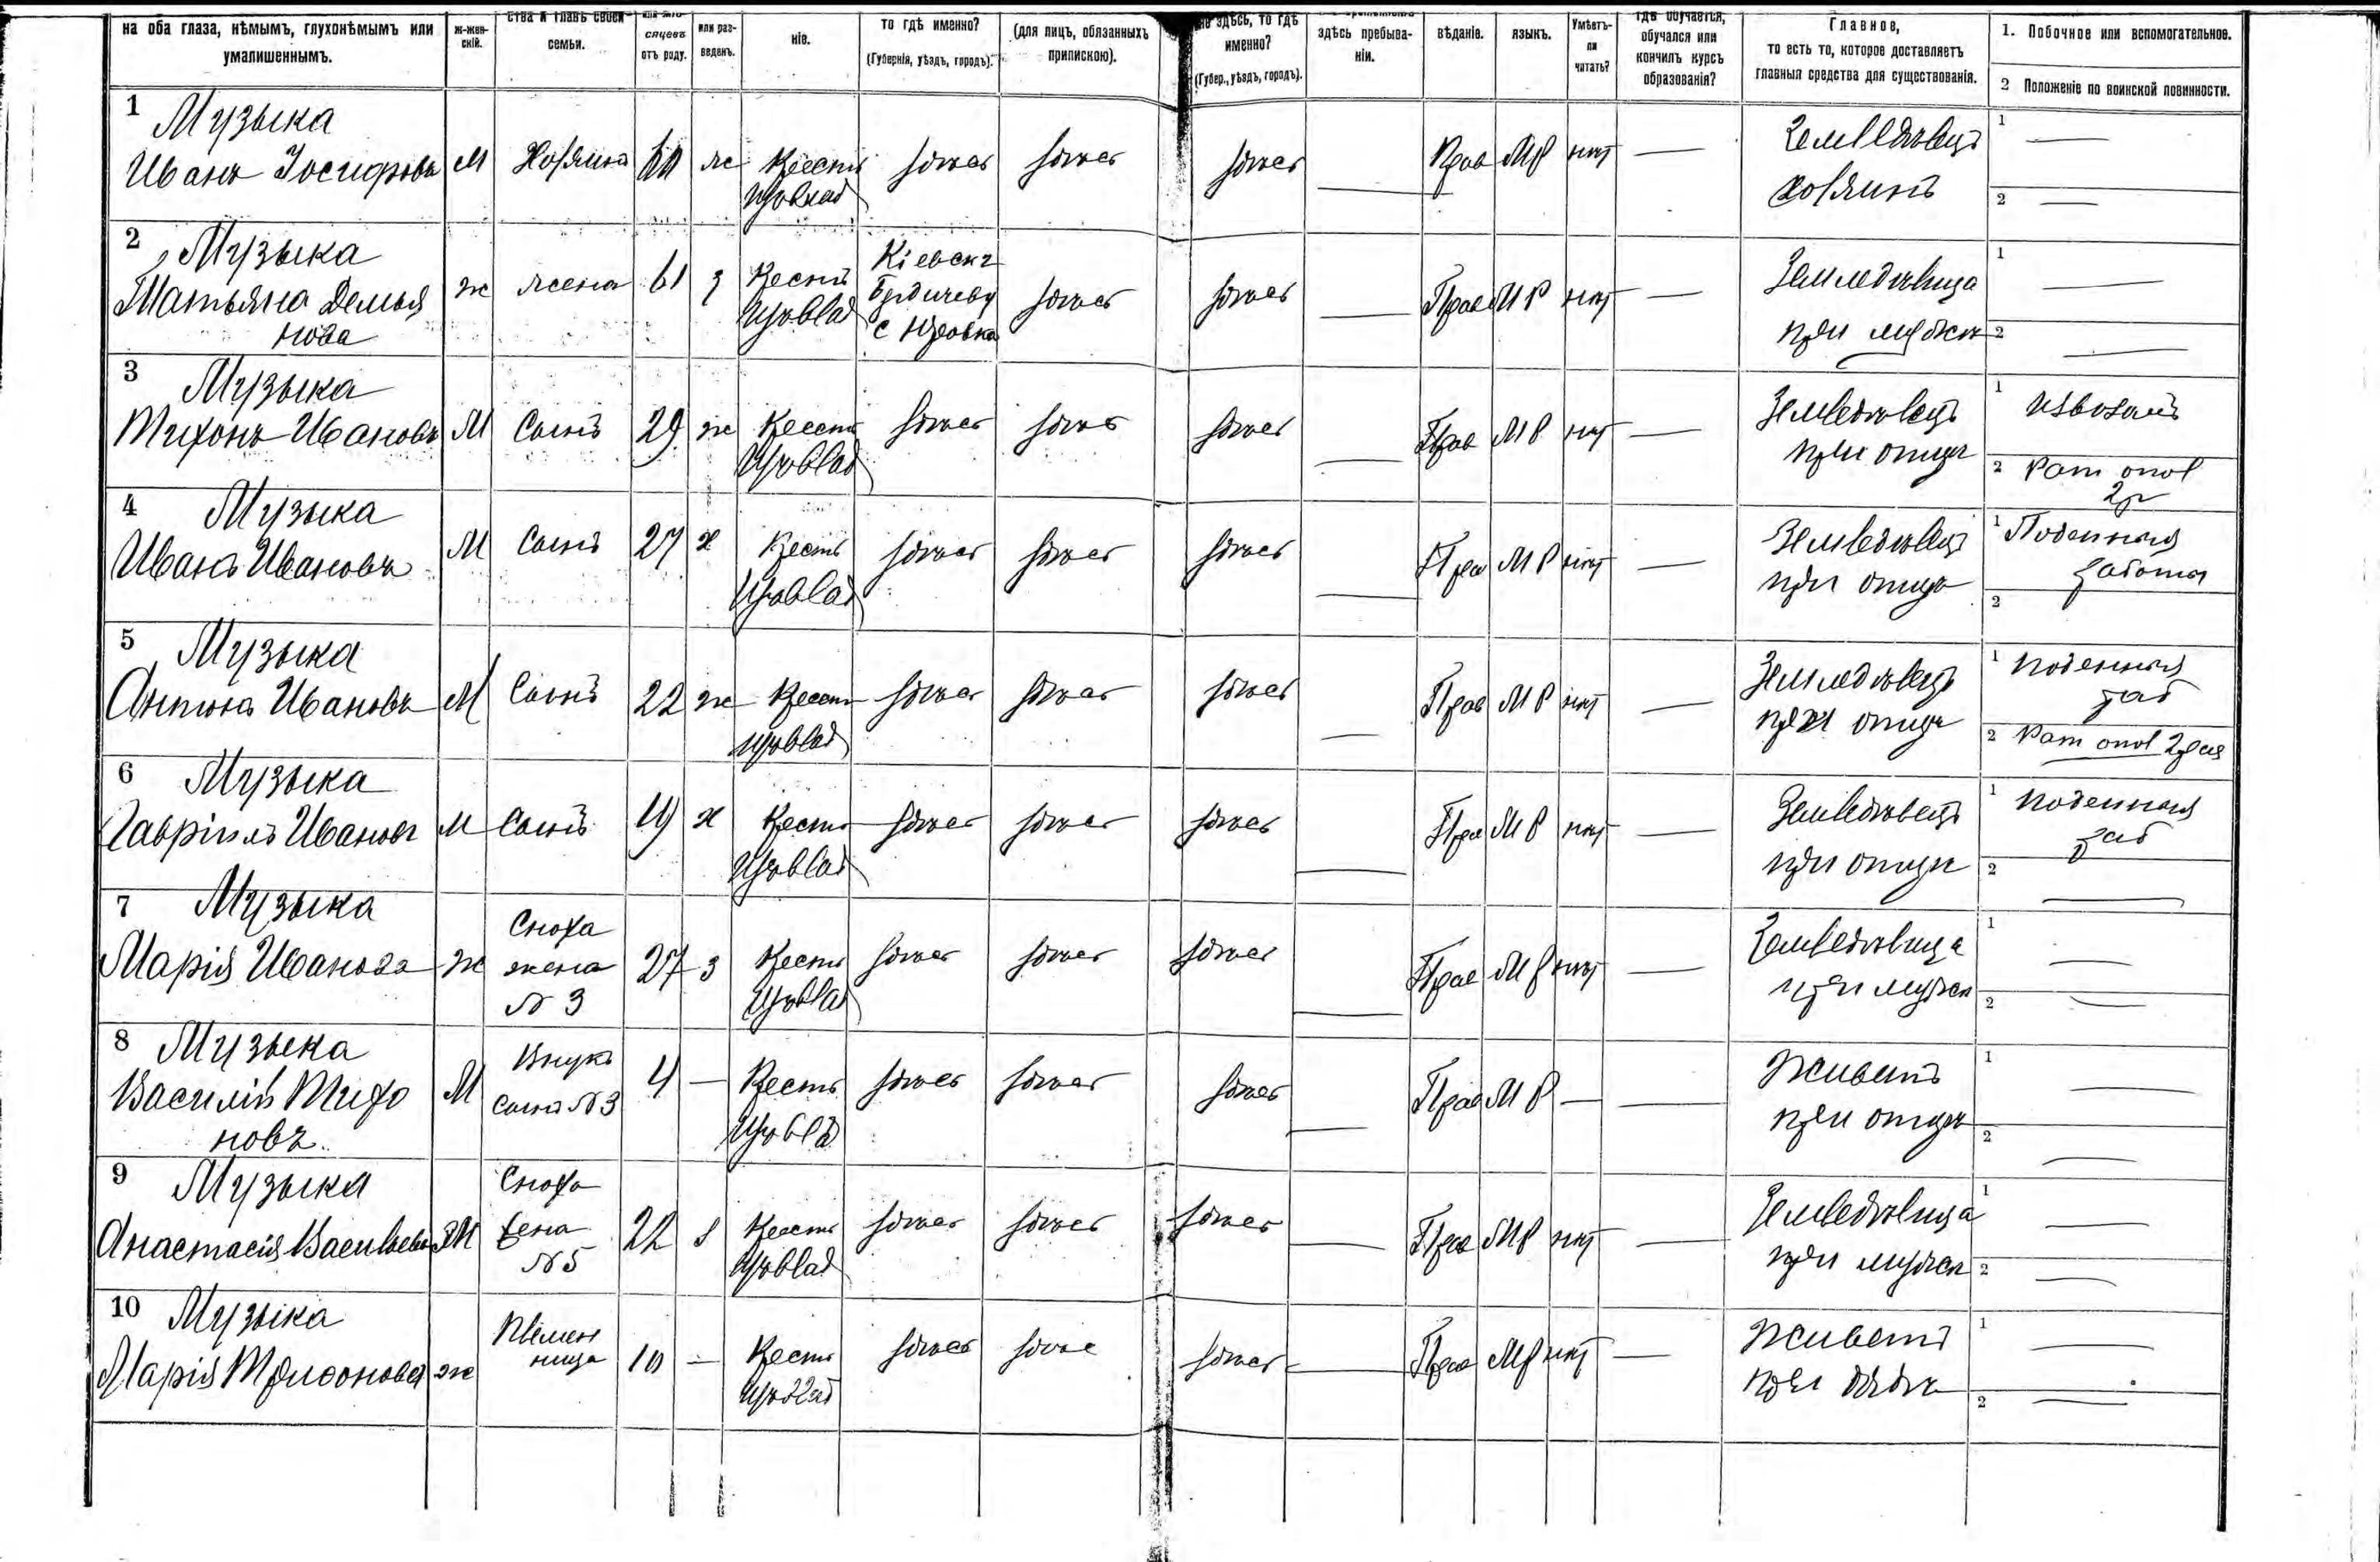 на оба глаза, нѣмымъ, глухонѣмымъ или
умалишеннымъ.
ж-жен-
скій.
ства и главѣ своей
семьи.
сяцевъ
отъ роду.
или раз-
веденъ.
ніе.
то гдѣ именно?
(Губернія, уѣздъ, городъ).
(для лицъ, обязанныхъ
припискою).
не здѣсь, то гдѣ
именно?
(Губер., уѣздъ, городъ).
здѣсь пребыва-
ніи.
вѣданіе.
языкъ.
Умѣетъ-
ли
читать?
гдѣ обучается,
обучался или
кончилъ курсъ
образованія?
Главное,
то есть то, которое доставляетъ
главныя средства для существованія.
1. Побочное или вспомогательное.
2 Положеніе по воинской повинности.
1 Музыка
Иванъ Іосифовъ М Хозяинъ 60 ж Крест здѣсь здѣсь здѣсь — Прав МР нѣт — Земледѣлецъ
хозяинъ
1 —
2 —
2 Музыка
Татьяна Демья
нова
ж жена 61 з Крест
Кіевск
Бердичевъ
с Юровка
здѣсь здѣсь — Прав МР нѣт — Земледѣлица
при мужѣ
1 —
2 —
3 Музыка
Тихонъ Ивановъ М Сынъ 29 ж Крест здѣсь здѣсь здѣсь — Прав МР нѣт — Земледѣлецъ
при отцѣ
1 Извозомъ
2 Рат опол
2 р
4 Музыка
Иванъ Ивановъ М Сынъ 27 х Крест здѣсь здѣсь здѣсь — Прав МР нѣт — Земледѣлецъ
при отцѣ
1 Поденная
работа
2
5 Музыка
Антонъ Ивановъ М Сынъ 22 ж Крест здѣсь здѣсь здѣсь — Прав МР нѣт — Земледѣлецъ
при отцѣ
1 поденная
раб
2 Рат опол 2 раз
6 Музыка
Гавріилъ Ивановъ М Сынъ 19 х Крест здѣсь здѣсь здѣсь — Прав МР нѣт — Земледѣлецъ
при отцѣ
1 поденная
раб
2 —
7 Музыка
Марія Иванова ж
Сноха
жена
№ 3
27 з Крест здѣсь здѣсь здѣсь — Прав МР нѣт — Земледѣлица
при мужѣ
1 —
2 —
8 Музыка
Василій Тихо
новъ.
М
Внукъ
сынъ № 3
4 — Крест здѣсь здѣсь здѣсь — Прав МР — — Живетъ
при отцѣ
1 —
2 —
9 Музыка
Анастасія Васильева Ж
Сноха
жена
№ 5
22 з Крест здѣсь здѣсь здѣсь — Прав МР нѣт — Земледѣлица
при мужѣ
1 —
2 —
10 Музыка
Марія Трифонова ж
Племен
ница
10 — Крест здѣсь здѣсь здѣсь — Прав МР нѣт — Живетъ
при дядѣ
1 —
2 —